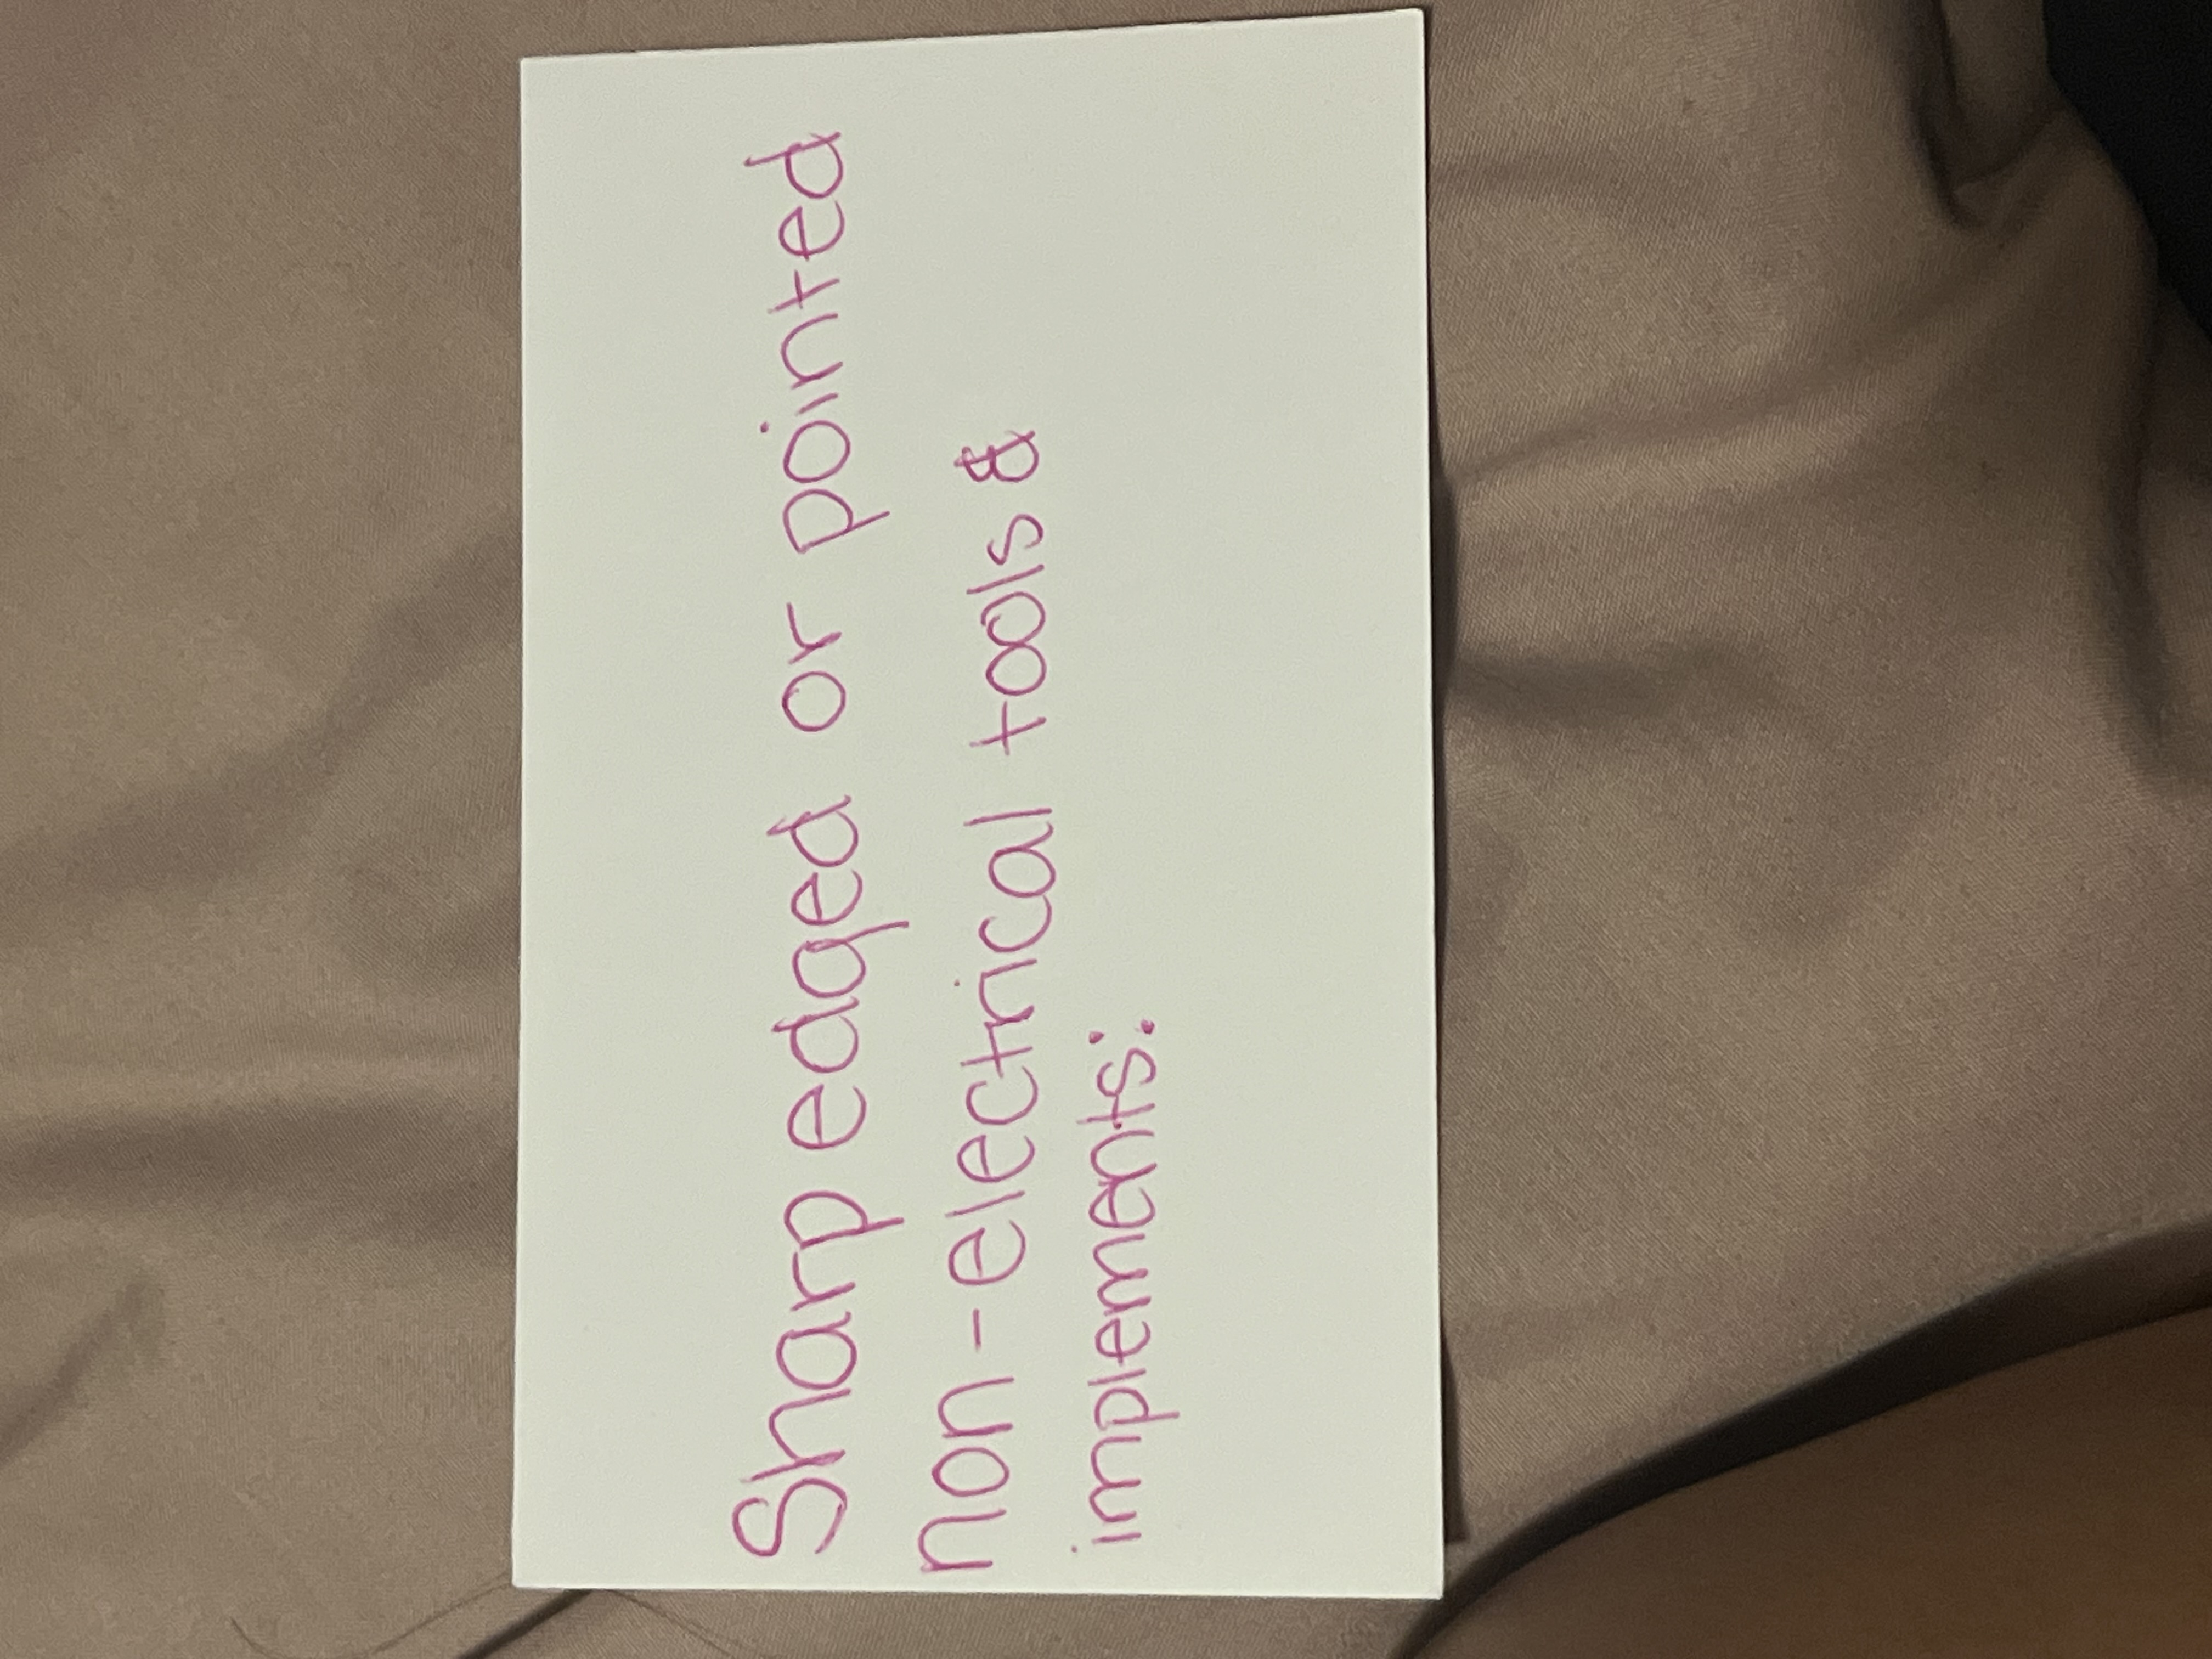 Sharp edged or pointed
non-electrical tools &
implements: